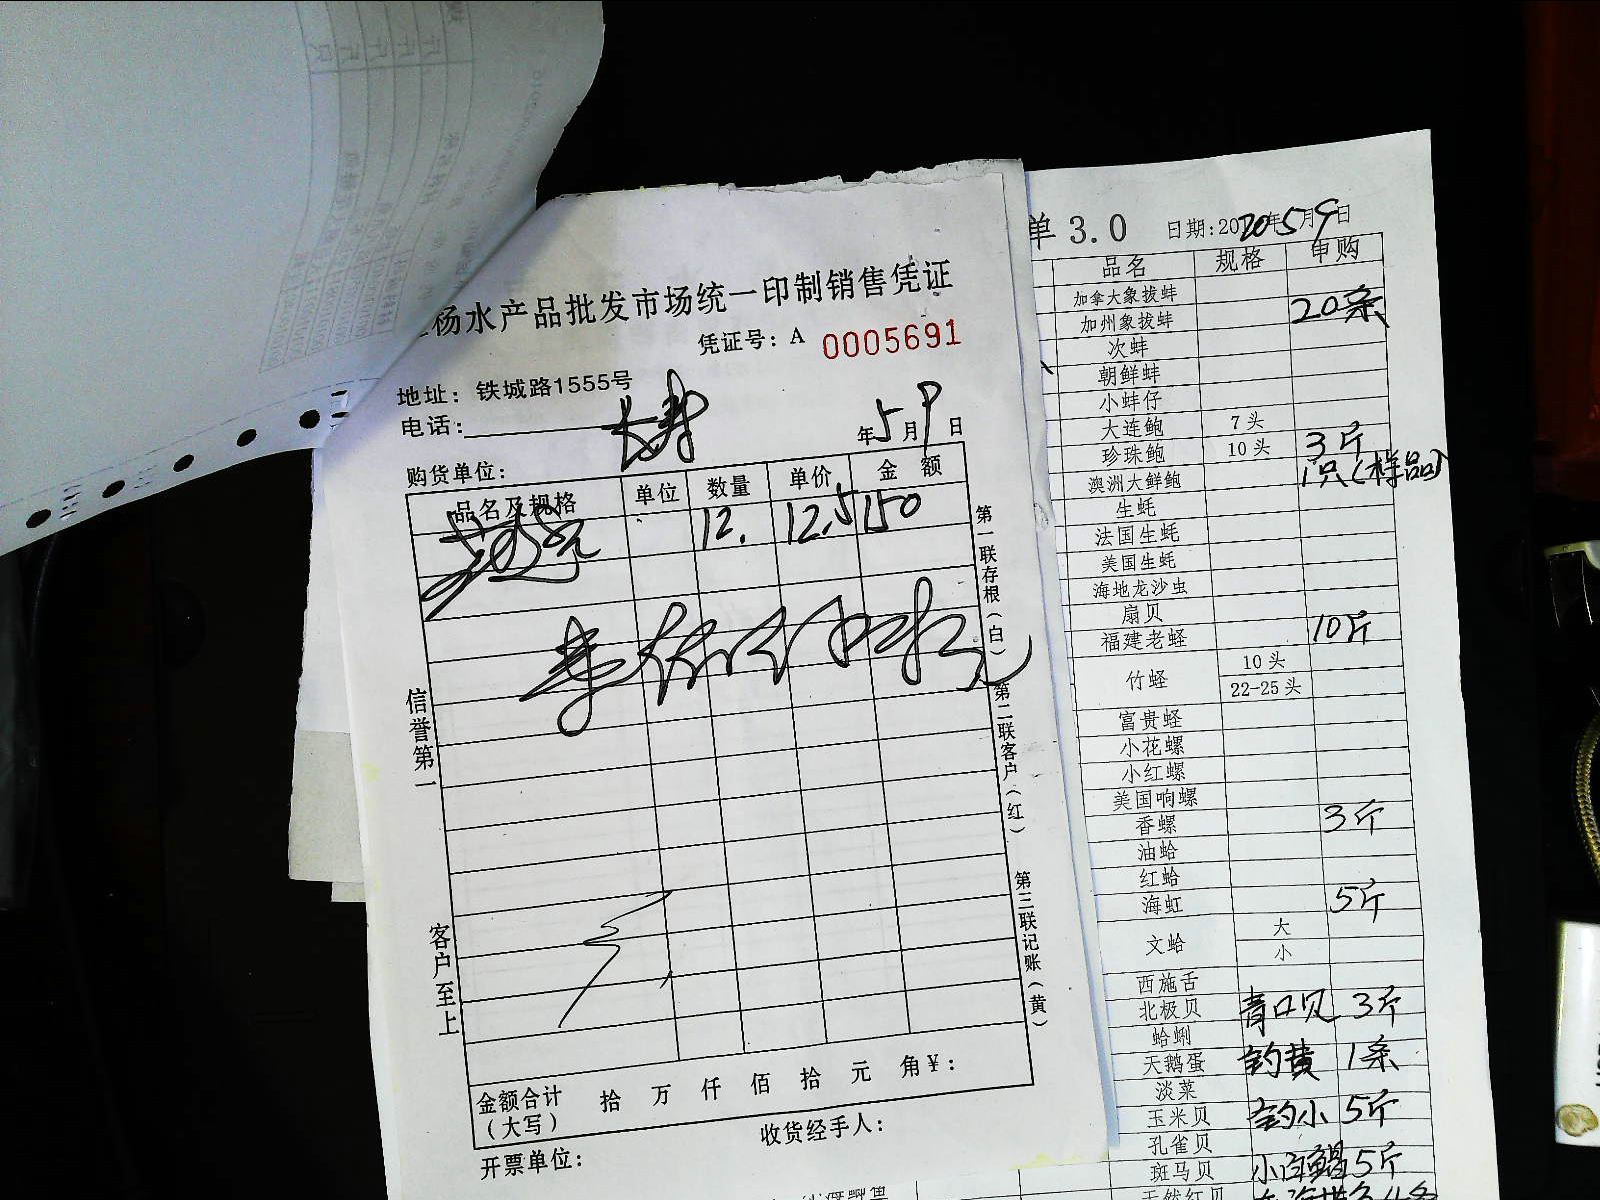 杨水产品批发市场统一印制销售凭证
凭证号：A 0005691
地址：铁城路1555号
电话：
年5月9日
购货单位：
品名及规格 单位 数量 单价 金额
12. 12.5 150
信誉第一
客户至上
第一联存根（白）
第二联客户（红）
第三联记账（黄）
金额合计（大写） 拾 万 仟 佰 拾 元 角 ¥：
收货经手人：
开票单位：
单3.0 日期:2020年5月9日
品名 规格 申购
加拿大象拔蚌
加州象拔蚌 20条
次蚌
朝鲜蚌
小蚌仔
大连鲍 7头
珍珠鲍 10头 3斤
澳洲大鲜鲍 1只(样品)
生蚝
法国生蚝
美国生蚝
海地龙沙虫
扇贝
福建老蛏 10斤
竹蛏 10头
22-25头
富贵蛏
小花螺
小红螺
美国响螺
香螺 3斤
油蛤
红蛤
海虹 5斤
文蛤 大
小
西施舌
北极贝 青口贝 3斤
蛤蜊
天鹅蛋 钓黄 1条
淡菜
玉米贝 钓小 5斤
孔雀贝
斑马贝 小白鲳 5斤
天然红贝